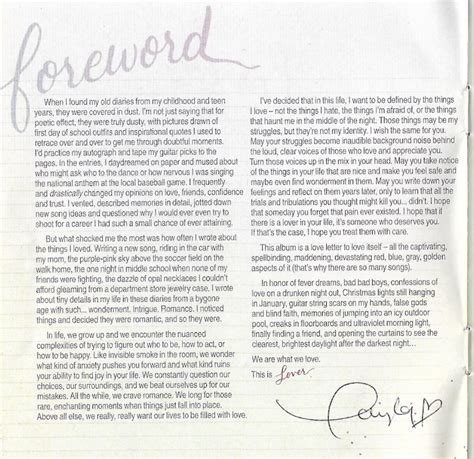 foreword
When I found my old diaries from my childhood and teen
years, they were covered in dust. I'm not just saying that for
poetic effect, they were truly dusty, with pictures drawn of
first day of school outfits and inspirational quotes I used to
retrace over and over to get me through doubtful moments.
I'd practice my autograph and tape my guitar picks to the
pages. In the entries, I daydreamed on paper and mused about
who might ask who to the dance or how nervous I was singing
the national anthem at the local baseball game. I frequently
and drastically changed my opinions on love, friends, confidence
and trust. I vented, described memories in detail, jotted down
new song ideas and questioned why I would ever even try to
shoot for a career I had such a small chance of ever attaining.
But what shocked me the most was how often I wrote about
the things I loved. Writing a new song, riding in the car with
my mom, the purple-pink sky above the soccer field on the
walk home, the one night in middle school when none of my
friends were fighting, the dazzle of opal necklaces I couldn't
afford gleaming from a department store jewelry case. I wrote
about tiny details in my life in these diaries from a bygone
age with such... wonderment. Intrigue. Romance. I noticed
things and decided they were romantic, and so they were.
In life, we grow up and we encounter the nuanced
complexities of trying to figure out who to be, how to act, or
how to be happy. Like invisible smoke in the room, we wonder
what kind of anxiety pushes you forward and what kind ruins
your ability to find joy in your life. We constantly question our
choices, our surroundings, and we beat ourselves up for our
mistakes. All the while, we crave romance. We long for those
rare, enchanting moments when things just fall into place.
Above all else, we really, really want our lives to be filled with love.
I've decided that in this life, I want to be defined by the things
I love – not the things I hate, the things I'm afraid of, or the things
that haunt me in the middle of the night. Those things may be my
struggles, but they're not my identity. I wish the same for you.
May your struggles become inaudible background noise behind
the loud, clear voices of those who love and appreciate you.
Turn those voices up in the mix in your head. May you take notice
of the things in your life that are nice and make you feel safe and
maybe even find wonderment in them. May you write down your
feelings and reflect on them years later, only to learn that all the
trials and tribulations you thought might kill you... didn't. I hope
that someday you forget that pain ever existed. I hope that if
there is a lover in your life, it's someone who deserves you.
If that's the case, I hope you treat them with care.
This album is a love letter to love itself – all the captivating,
spellbinding, maddening, devastating red, blue, gray, golden
aspects of it (that's why there are so many songs).
In honor of fever dreams, bad boys, confessions of
love on a drunken night out, Christmas lights still hanging
in January, guitar string scars on my hands, false gods
and blind faith, memories of jumping into an icy outdoor
pool, creaks in floorboards and ultraviolet morning light,
finally finding a friend, and opening the curtains to see the
clearest, brightest daylight after the darkest night...
We are what we love.
This is Lover